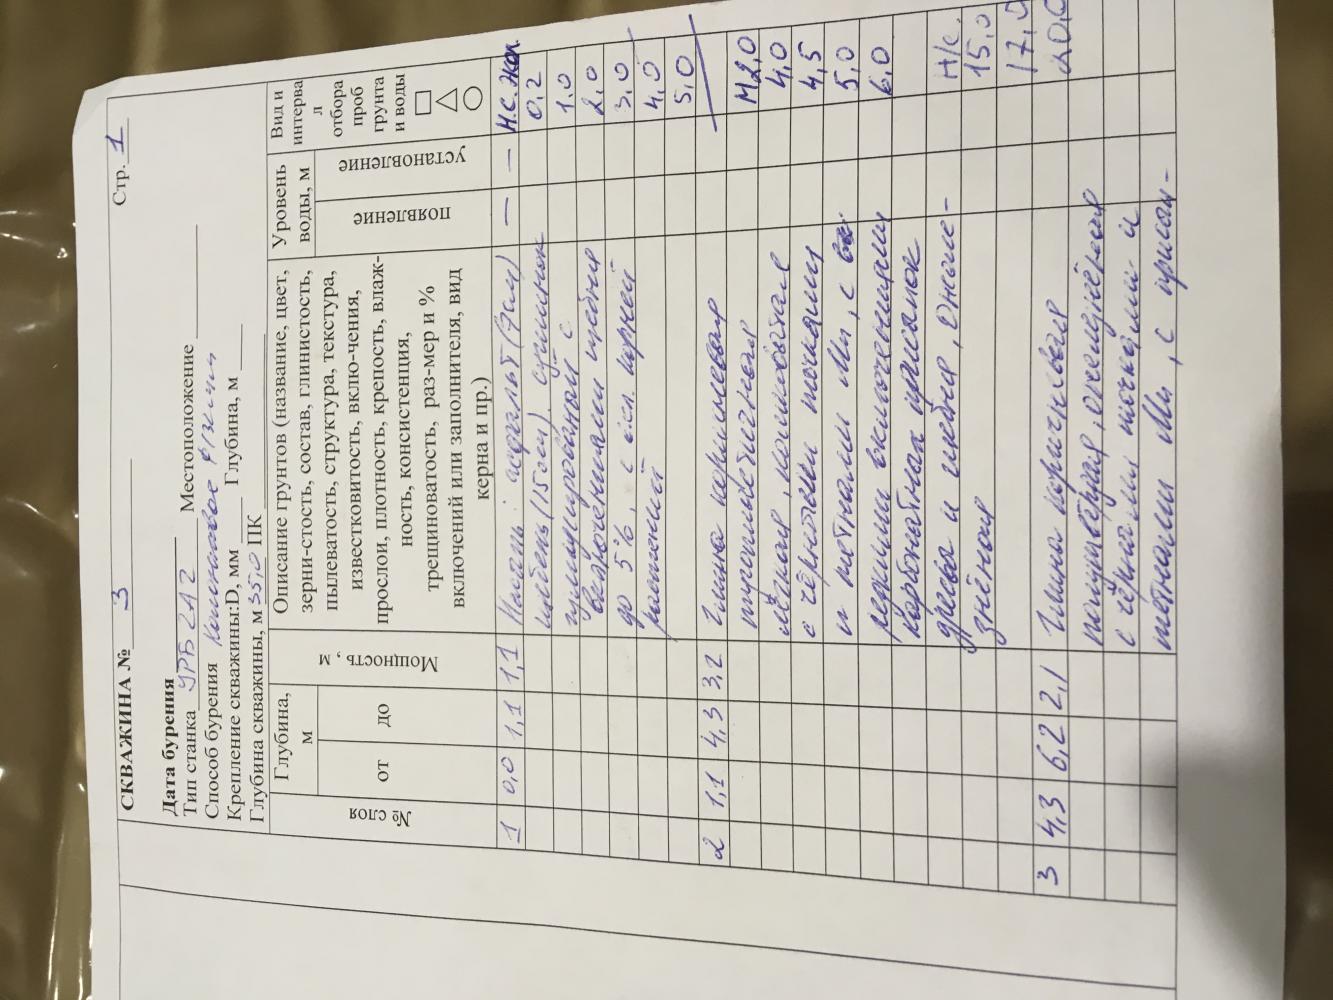 Стр. 1
СКВАЖИНА № 3
Дата бурения
Тип станка УРБ 2А2 Местоположение
Способ бурения
Крепление скважины:D, мм Глубина, м
Глубина скважины, м 35,0 ПК
№ слоя
Глубина, м
от
до
Мощность, м
Описание грунтов (название, цвет,
зерни-стость, состав, глинистость,
пылеватость, структура, текстура,
известковитость, вклю-чения,
прослои, плотность, крепость, влаж-
ность, консистенция,
трещиноватость, раз-мер и %
включений или заполнителя, вид
керна и пр.)
Уровень
воды, м
появление
установление
Вид и
интерва
л
отбора
проб
грунта
и воды
1 0,0 1,1 1,1 Насыпь: асфальт (7см) — — Н.с.
щебень (15см), суглинок 0,2
с 1,0
включениями щебня 2,0
до 5%, с корней 3,0
растений 4,0
5,0
2 1,1 4,3 3,2 Глина коричневая
тугопластичная М2,0
4,0
с чёрными точками 4,5
и пятнами Mn, с 5,0
редкими включениями 6,0
карбонатная
дресвы и щебня, ожеле- Н/с.
знённая 15,0
17,0
20,0
3 4,3 6,2 2,1 Глина коричневая
полутвёрдая,
с чёрными точками и
пятнами Mn, с